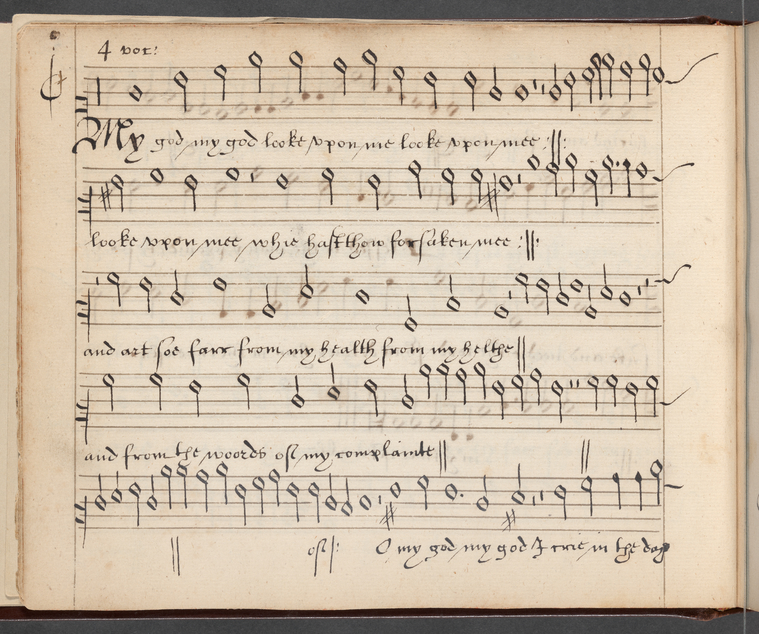 4 voc:
My god my god looke vpon me looke vpon mee :||:
looke vpon mee whie hast thow forsaken mee :||:
and art soe farr from my health from my helthe ||
and from the woords off my complainte || ||
|| off |: O my god my god I crie in the day